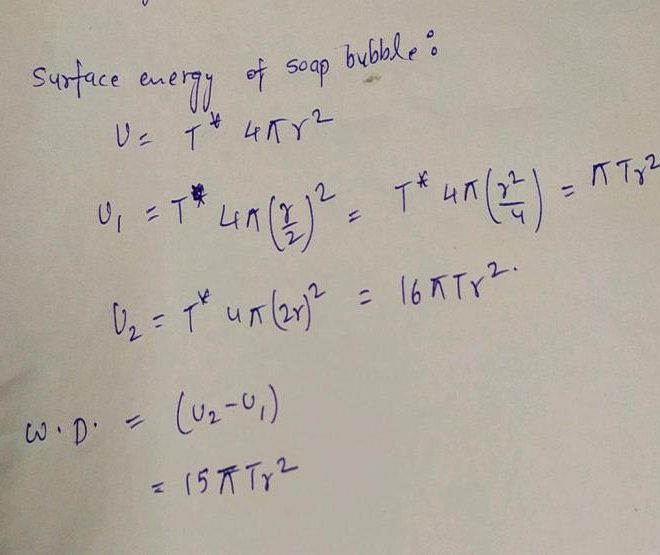 Surface energy of soap bubble:
U = T* 4πr²
U₁ = T* 4π(r/2)² = T* 4π(r²/4) = πTr²
U₂ = T* 4π(2r)² = 16πTr².
W.D. = (U₂-U₁)
= 15πTr²